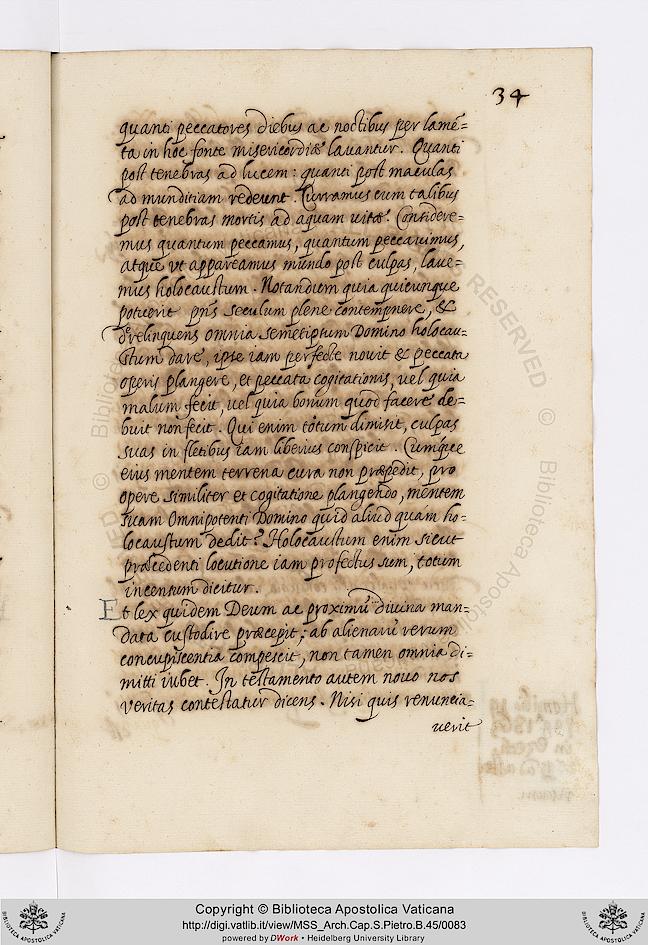 34
quanti peccatores diebus ac noctibus per lamē=
ta in hoc fonte misericordiæ lauantur. Quanti
post tenebras ad lucem: quanti post maculas
ad munditiam redeunt. Curramus cum talibus
post tenebras mortis ad aquam uitæ. Considere=
mus quantum peccamus, quantum peccauimus,
atque vt appareamus mundo post culpas, laue=
mus holocaustum. Notandum quia quicunque
potuerit pñs seculum plene contemnere, &
derelinquens omnia semetipsum Domino holocau=
stum dare, ipse iam perfecte nouit & peccata
operis plangere, et peccata cogitationis, uel quia
malum fecit, uel quia bonum quod facere de=
buit non fecit. Qui enim totum dimisit, culpas
suas in fletibus iam liberius conspicit. Cumque
eius mentem terrena cura non præpedit, pro
opere similiter et cogitatione plangendo, mentem
suam Omnipotenti Domino quid aliud quàm ho=
locaustum dedit? Holocaustum enim sicut
præcedenti locutione iam profectus sum, totum
incensum dicitur.
Et lex quidem Deum ac proximū diuina man=
data custodire præcepit; ab alienarū verum
concupiscentia compescit, non tamen omnia di=
mitti iubet. In testamento autem nouo nos
veritas contestatur dicens. Nisi quis renuncia=
uerit
Copyright © Biblioteca Apostolica Vaticana
http://digi.vatlib.it/view/MSS_Arch.Cap.S.Pietro.B.45/0083
powered by DWork • Heidelberg University Library